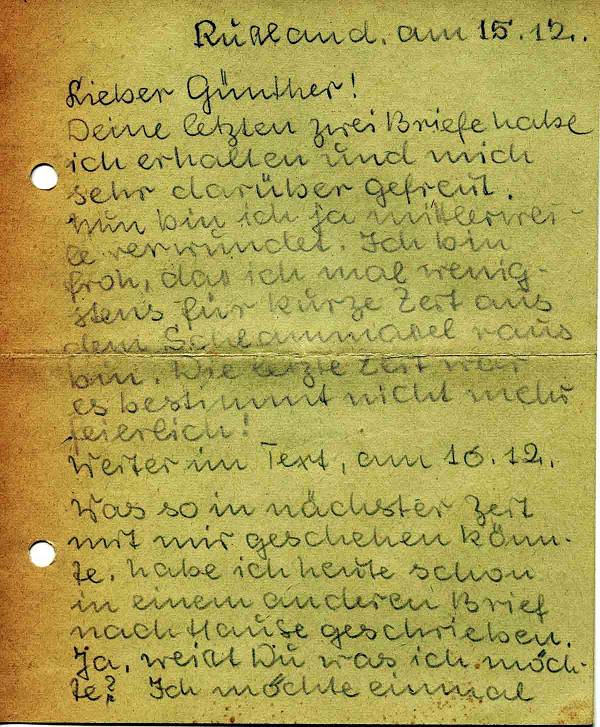 Rußland, am 15.12..
Lieber Günther!
Deine letzten zwei Briefe habe
ich erhalten und mich
sehr darüber gefreut.
Nun bin ich ja mittlerwei-
le verwundet. Ich bin
froh, das ich mal wenig-
stens für kurze Zeit aus
dem Schlammasel raus
bin. Die letzte Zeit war
es bestimmt nicht mehr
feierlich!
Weiter im Text, am 16.12.
Was so in nächster Zeit
mit mir geschehen könn-
te, habe ich heute schon
in einem anderen Brief
nach Hause geschrieben.
Ja, weißt Du was ich möch-
te? Ich möchte einmal